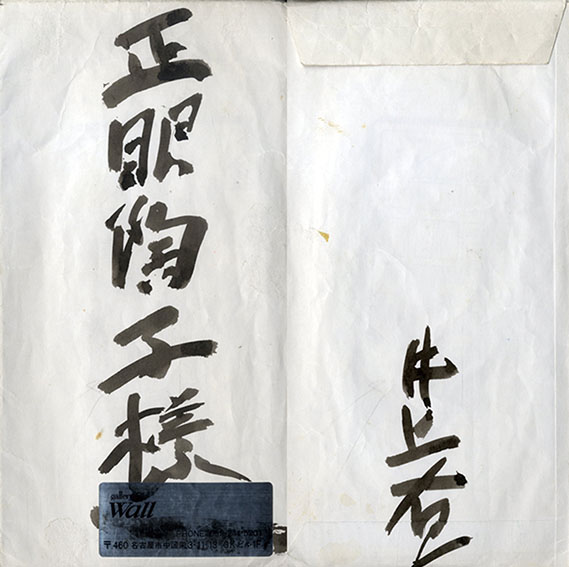 正眼陶子様
gallery
Wall
〒460 名古屋市中区栄
井上有一